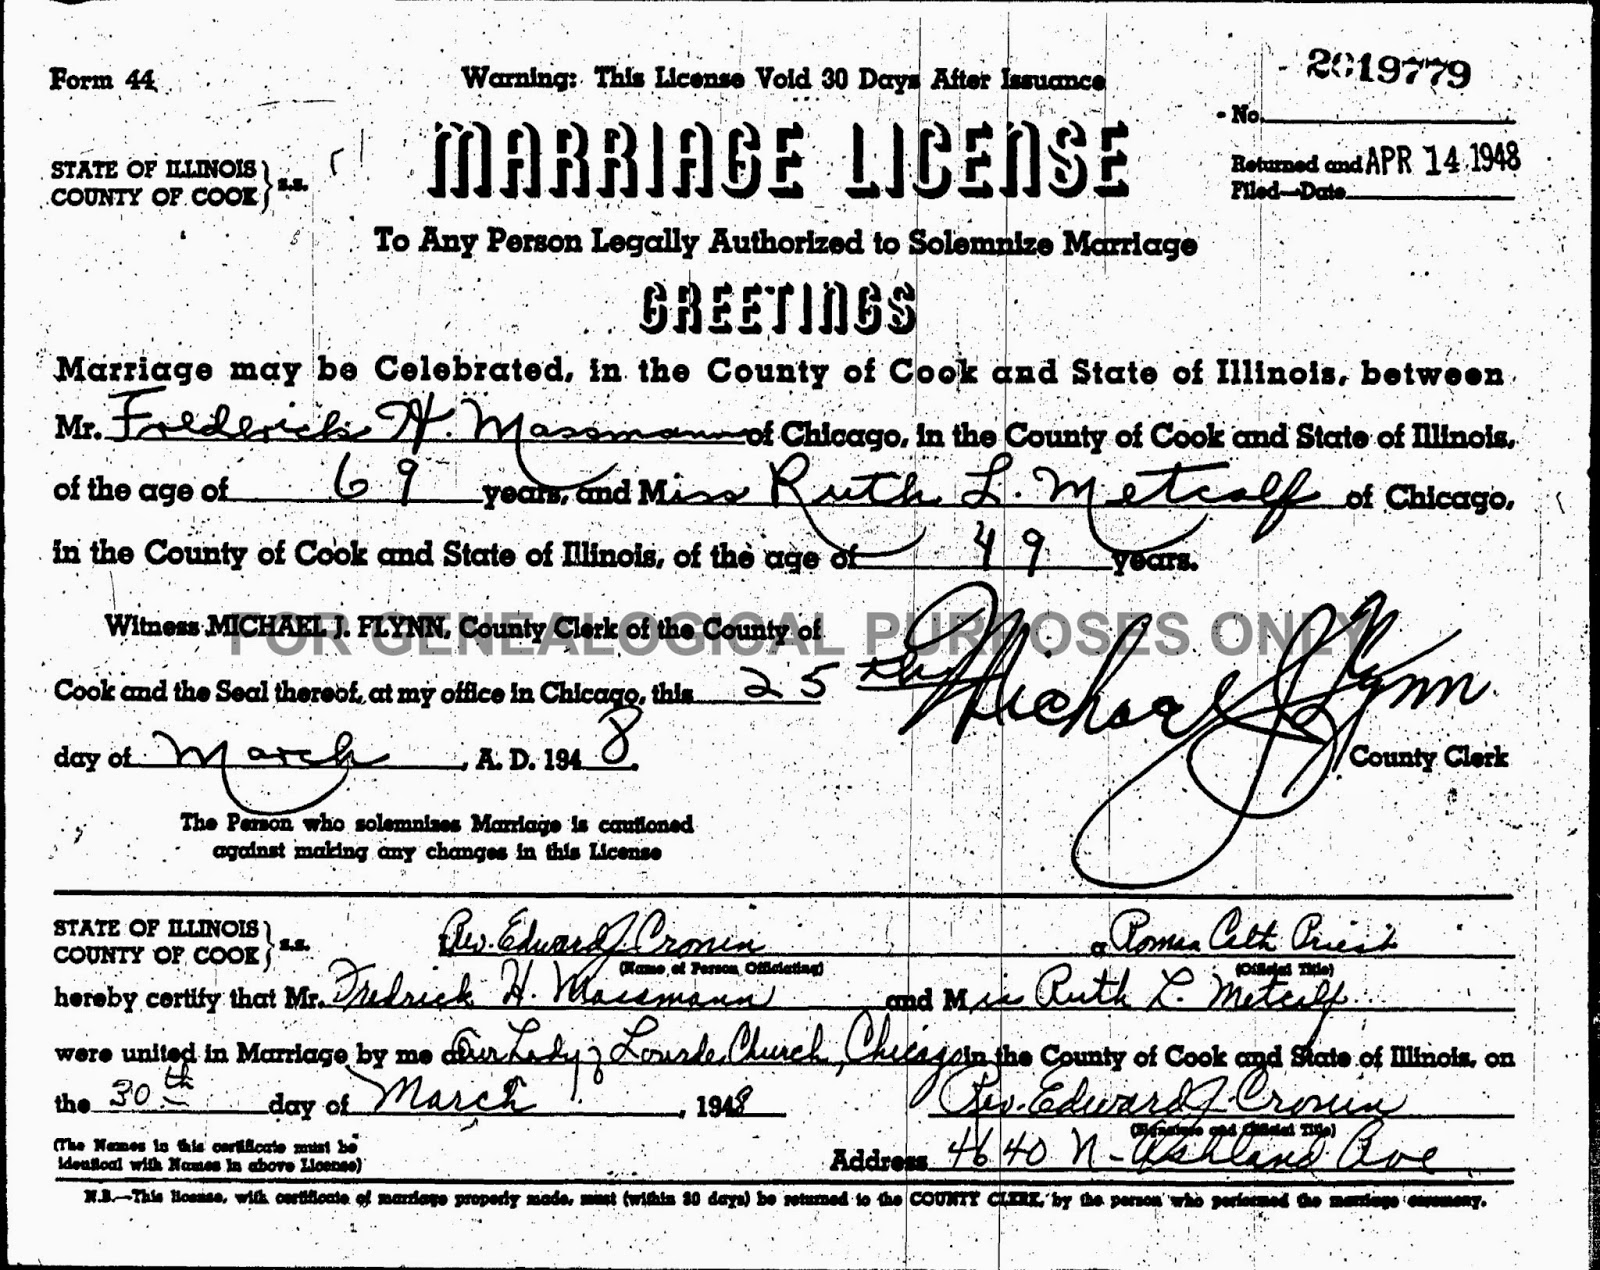 Form 44
Warning: This License Void 30 Days After Issuance
2019779
No.
STATE OF ILLINOIS
COUNTY OF COOK } s.s.
MARRIAGE LICENSE
Returned and APR 14 1948
Filed—Date
To Any Person Legally Authorized to Solemnize Marriage
GREETINGS
Marriage may be Celebrated, in the County of Cook and State of Illinois, between
Mr. Frederick H. Massmann of Chicago, in the County of Cook and State of Illinois,
of the age of 69 years, and Miss Ruth L. Metcalf of Chicago,
in the County of Cook and State of Illinois, of the age of 49 years.
FOR GENEALOGICAL PURPOSES ONLY
Witness MICHAEL J. FLYNN, County Clerk of the County of
Cook and the Seal thereof, at my office in Chicago, this 25
Michael J Flynn
day of March, A. D. 1948.
County Clerk
The Person who solemnizes Marriage is cautioned
against making any changes in this License
STATE OF ILLINOIS
COUNTY OF COOK } s.s.
I Rev. Edward J. Cronin a Roman Cath Priest
(Name of Person Officiating) (Official Title)
hereby certify that Mr. Fredrick H. Massmann and Miss Ruth L. Metcalf
were united in Marriage by me at Our Lady of Lourdes Church, Chicago in the County of Cook and State of Illinois, on
the 30th day of March, 1948 Rev. Edward J. Cronin
(Signature and Official Title)
(The Names in this certificate must be
identical with Names in above License)
Address 4640 N. Ashland Ave
N.B.—This license, with certificate of marriage properly made, must (within 30 days) be returned to the COUNTY CLERK, by the person who performed the marriage ceremony.